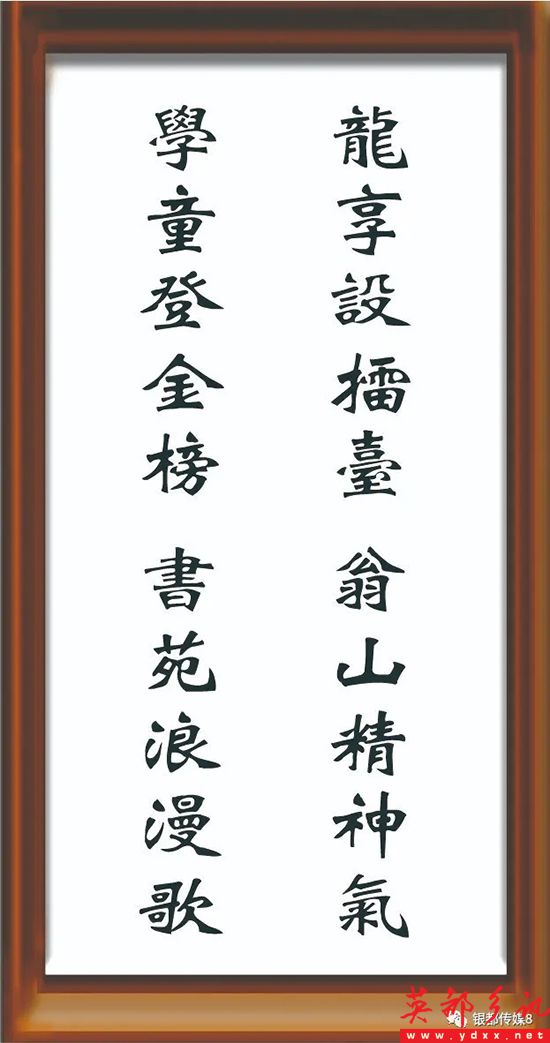 龍享設擂臺 翁山精神氣
學童登金榜 書苑浪漫歌
英都乡讯
银都传媒8
www.ydxx.net